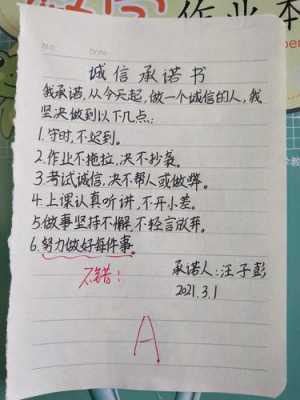 作业本
No.
Date
诚信承诺书
我承诺,从今天起,做一个诚信的人,我
坚决做到以下几点:
1.守时,不迟到。
2.作业不拖拉,决不抄袭。
3.考试诚信,决不帮人或做弊。
4.上课认真听讲,不开小差。
5.做事坚持不懈,不轻言放弃。
6.努力做好每件事。
不错!
承诺人:汪子彭
2021.3.1
A